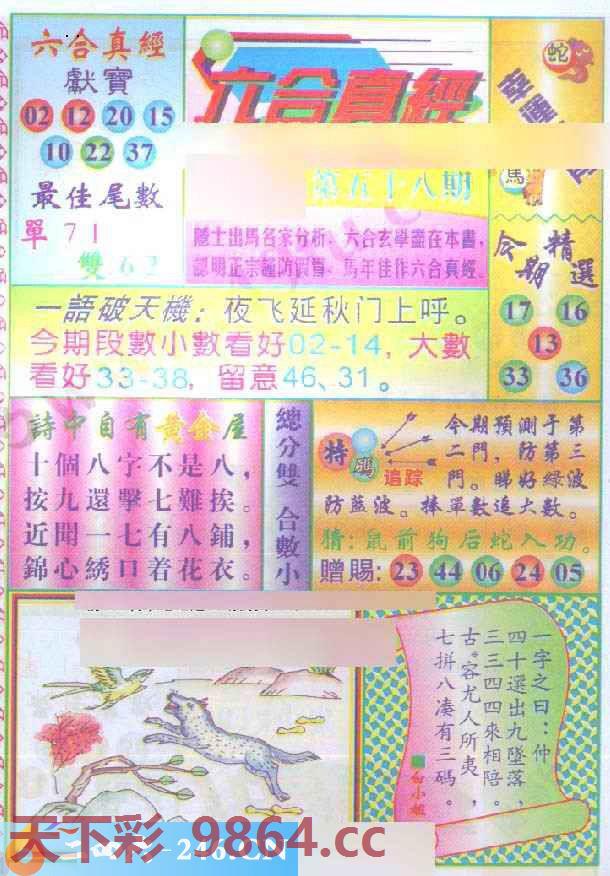 六合真經
獻寶
02 12 20 15
10 22 37
最佳尾數
單71
雙62
六合真經
第五十八期
隱士出馬名家分析，六合玄學盡在本書，
認明正宗謹防假冒，馬年佳作六合真經。
蛇
馬
今期
精選
17 16
13
33 36
一語破天機：夜飞延秋门上呼。
今期段數小數看好02-14，大數
看好33-38，留意46、31。
詩中自有黃金屋
十個八字不是八，
按九還擊七難挨。
近聞一七有八鋪，
錦心綉口着花衣。
總分雙
合數小
特碼
追踪
今期預測于第
二門，防第三
門。睇好綠波
防藍波。捧單數追大數。
猜：鼠前狗后蛇入功。
赠賜：23 44 06 24 05
一字之曰：仲
四十選出九墜落，
三三四四來相陪。
古客尤人所夷，
七拼八凑有三碼。
白小姐
天下彩 9864.cc
246.CN